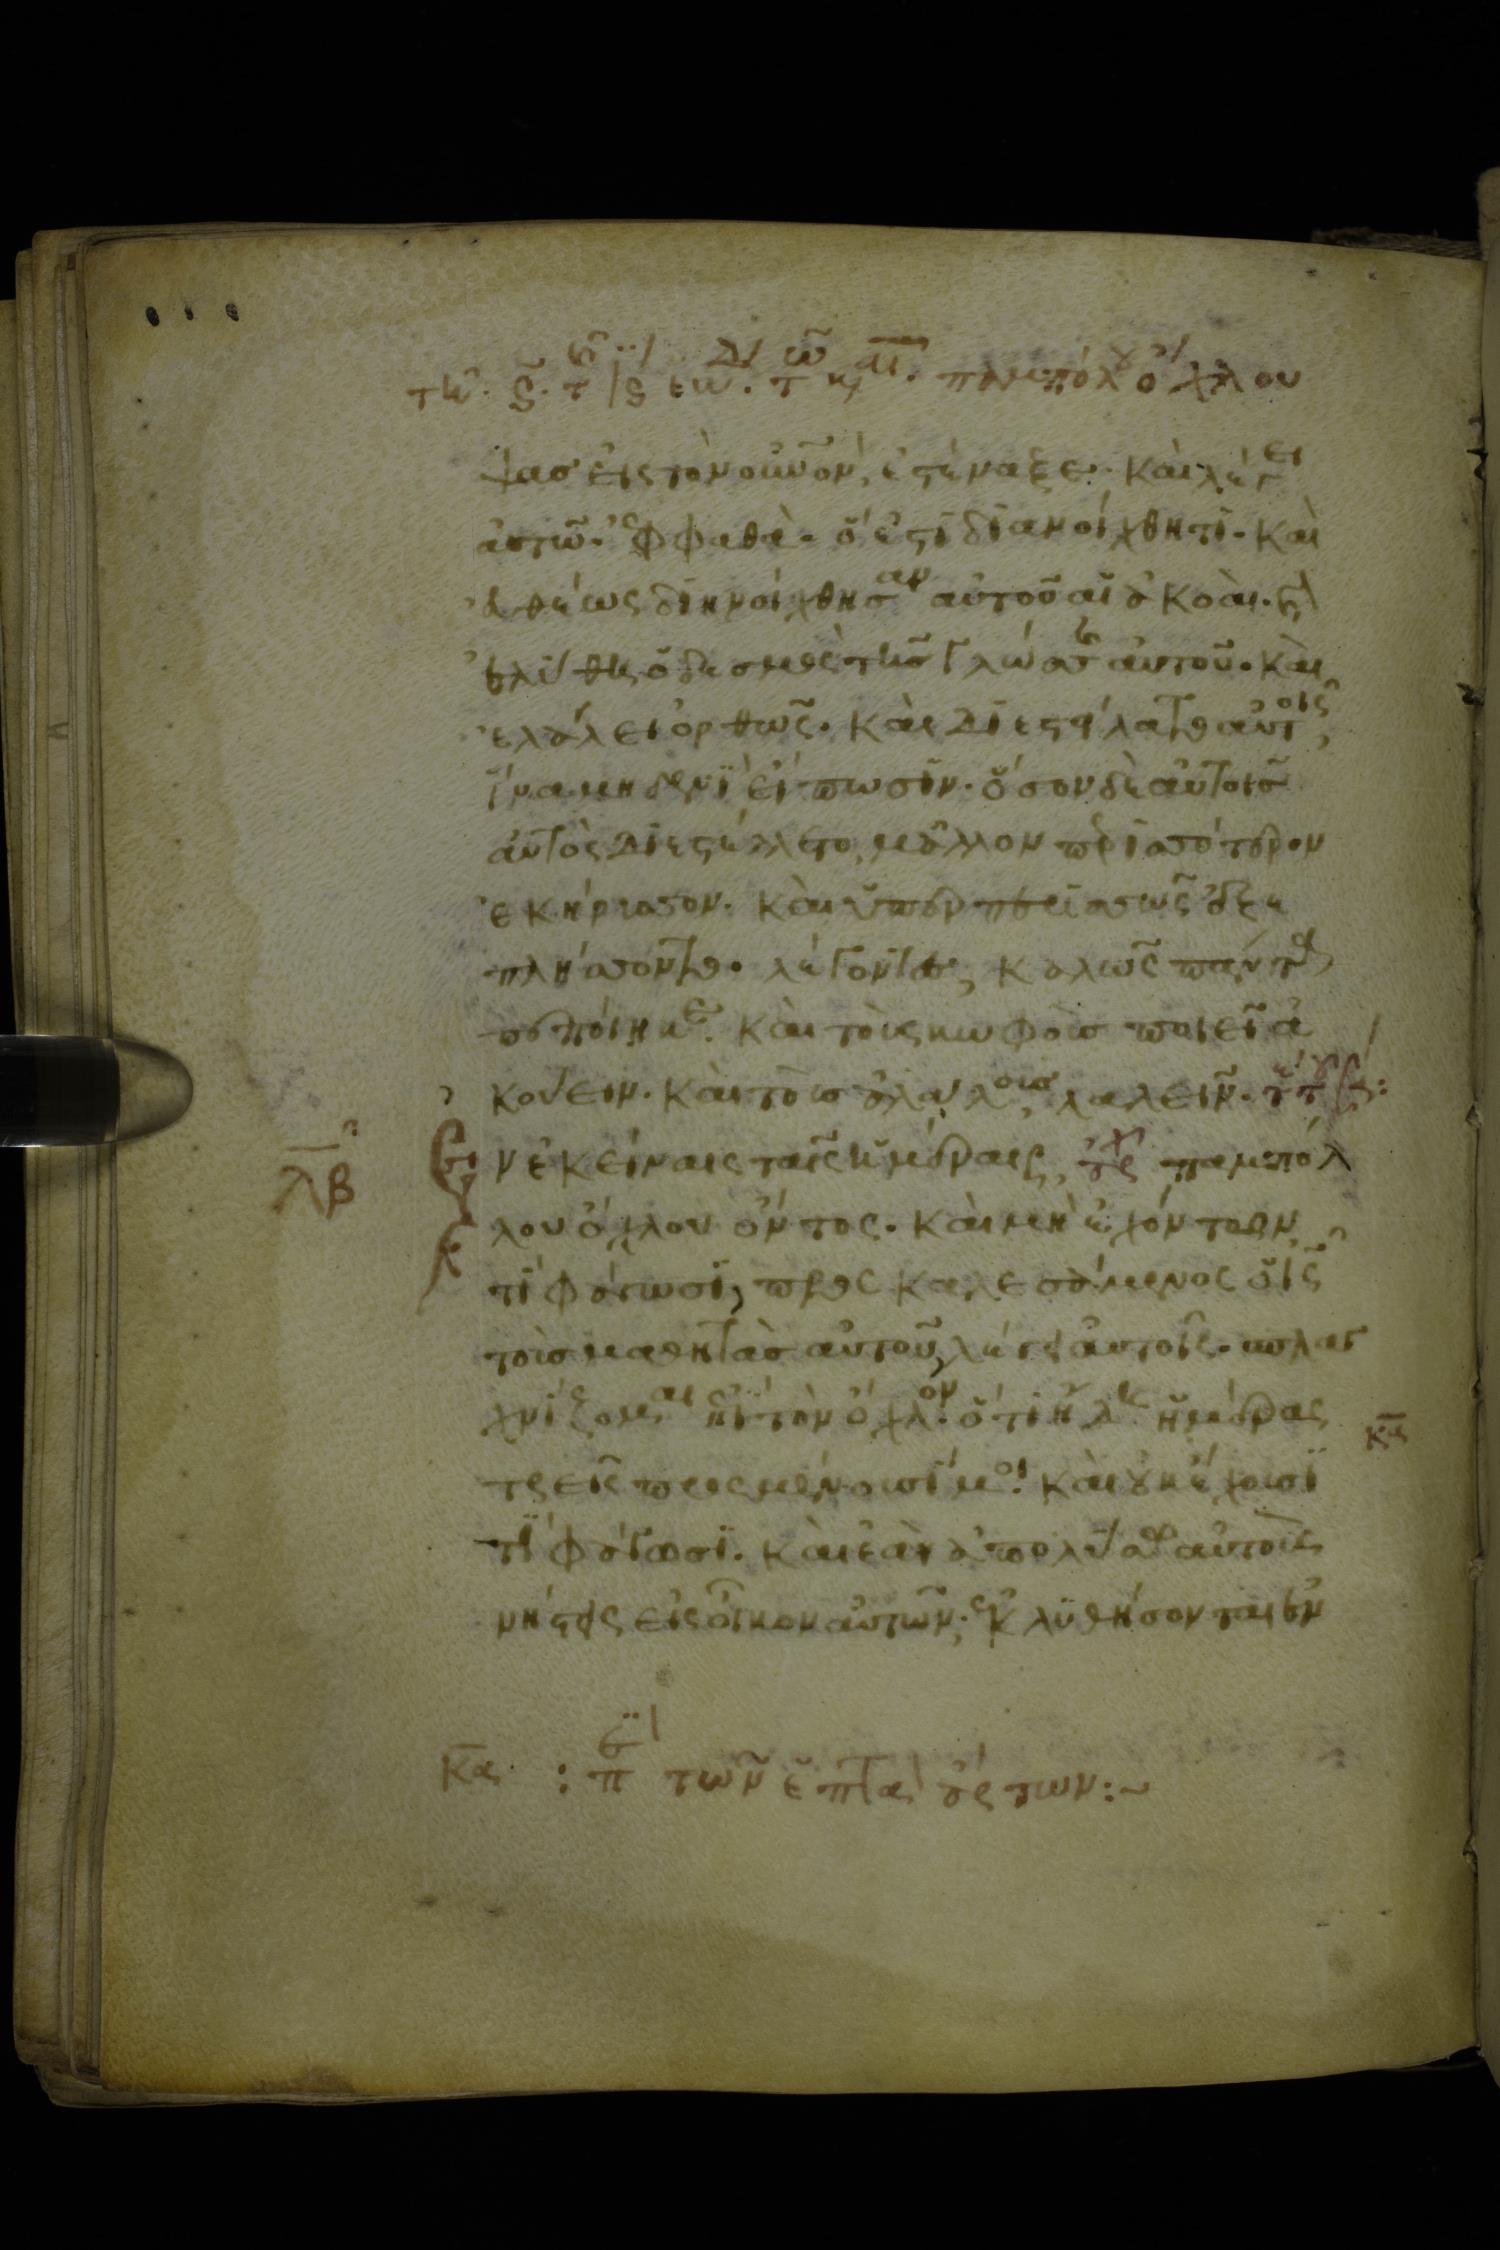 παμπόλ ὄχλου
ψας εἰς τὸν οὐνὸν, ἐστέναξε. Καὶ λέγει
αὐτῶ. ἐφφαθὰ. ὅ ἐστὶ διανοίχθητι. Καὶ
εὐθέως διηνοίχθησαν αὐτοῦ αἱ ἀκοὰι. καὶ
ἐλύθη ὁ δεσμὸς τῆς γλώσσης αὐτοῦ. Καὶ
ἐλάλει ὀρθῶς. Καὶ διεστείλατο αὐτοῖς,
ἵνα μηδενὶ εἴπωσϊν. ὅσον δὲ αὐτοῖς
αὐτὸς διεστέλλετο, μᾶλλον περισσότερον
ἐκήρυσσον. Καὶ ὑπὲρ περισσῶς ἐξε
πλήσσοντο. λέγοντες, Καλῶς πάντα
πεποίηκε. Καὶ τοὺς κωφοὺς ποιεῖ ἀ
κούειν. Καὶ τοὺς ἀλάλους, λαλεῖν.
λβ
Εν ἐκείναις ταῖς ἡμέραις, παμπόλ
λου ὄχλου ὄντος. Καὶ μὴ ἐχόντων
τί φάγωσϊ, προσκαλεσάμενος ὁ ις
τοὺς μαθητὰς αὐτοῦ, λέγει αὐτοῖς. σπλαγ
χνίζομαι ἐπὶ τὸν ὄχλον. ὅτι ἤδη ἡμέρας
τρεῖς προσμένουσί μοι. Καὶ οὐκ ἔχουσϊ
τί φάγωσϊ. Καὶ ἐὰν ἀπολύσω αὐτοὺς
νήστεις εἰς οἶκον αὐτῶν, ἐκλυθήσονται ἐν
κα : π τῶν ἑπτὰ ἄρτων:~